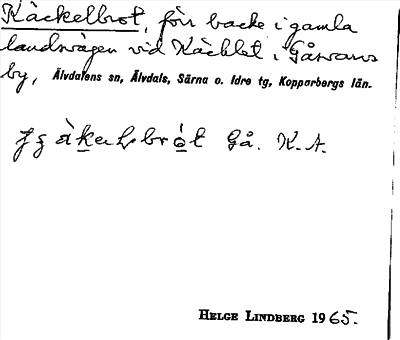 Käckelbrot, för backe i gamla
landsvägen vid Käcklet i Gåsvars
by, Älvdalens sn, Älvdals, Särna o. Idre tg, Kopparbergs län.
Gå. K. A.
HELGE LINDBERG 1965.